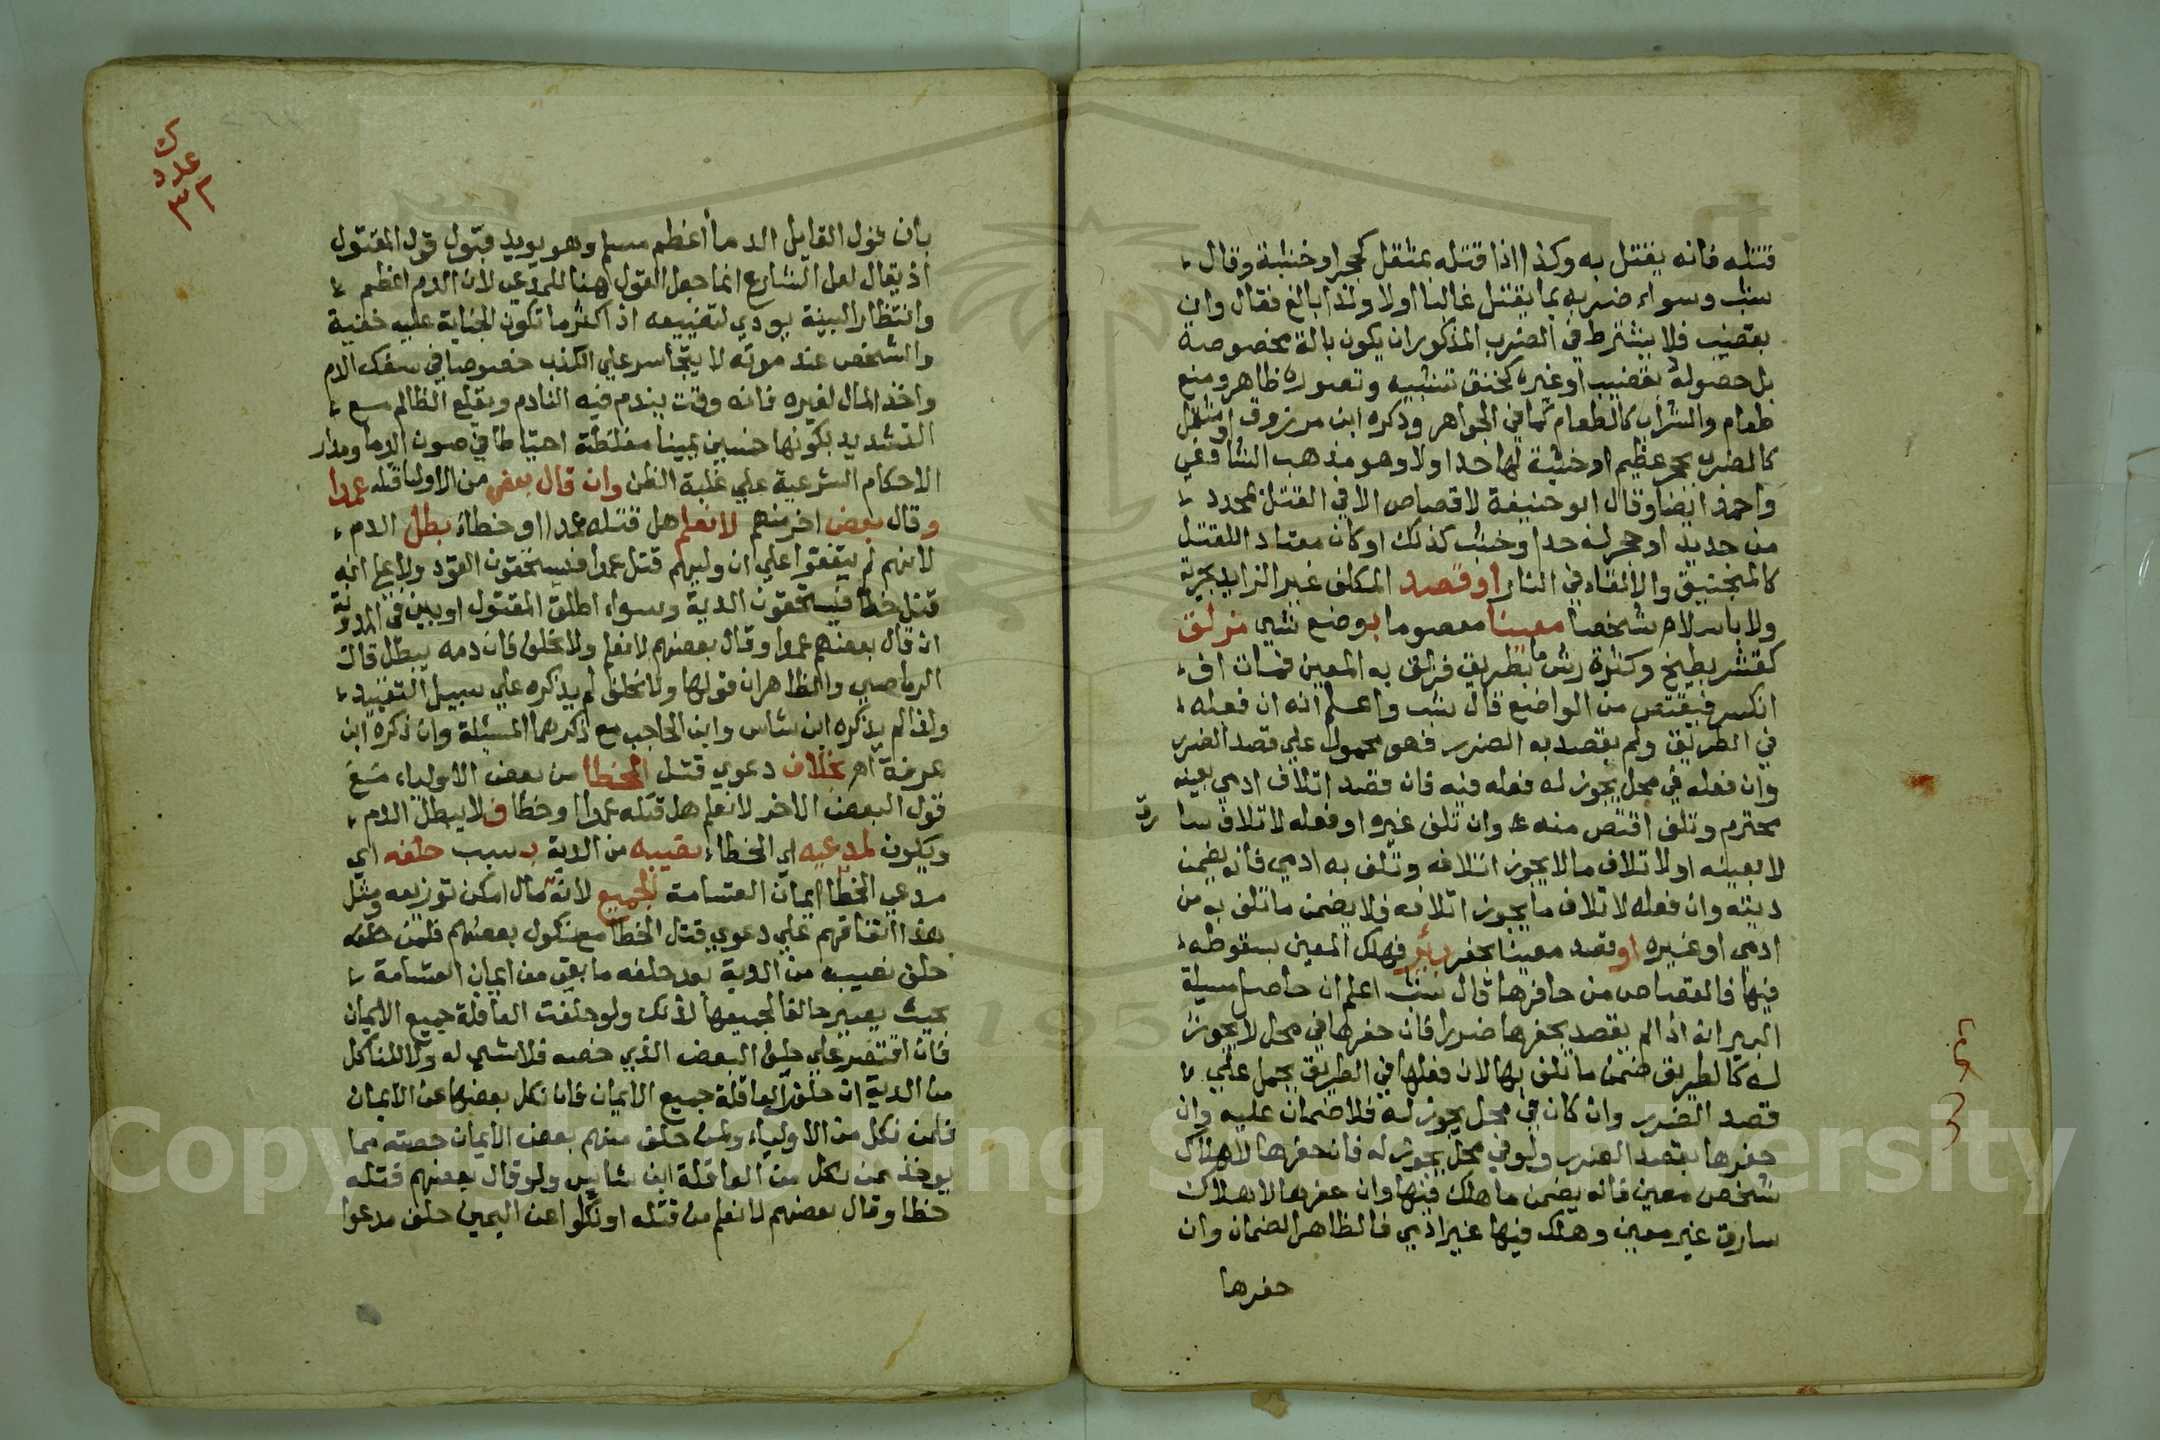 قتله فانه يقتل به وكذا اذا قتله بمثقل كحجر او خشبة وقال
شب وسواء ضربه بما يقتل غالبا اولا ولذا بالغ فقال وان
بقضيب فلا يشترط في الضرب المذكور ان يكون بالة مخصوصة
بل حصوله بقضيب او غيره كخنق تشبيه وتصوره ظاهر ومنع
طعام والشراب كالطعام كما في الجواهر وذكره ابن مرزوق او مثقل
كالضرب بحجر عظيم او خشبة لها حد اولا وهو مذهب الشافعي
واحمد ايضا وقال ابو حنيفة لا قصاص الا في القتل بمحدد
من حديد او حجر له حد او خشب كذلك او كان معتادا للقتل
كالمنجنيق والالقاء في النار او قصد المكلف غير الزايد بحرية
ولا باسلام شخصا معينا معصوما بوضع شيء مزلق
كقشر بطيخ وكثرة رش ما بطريق فزلق به المعين فمات او
انكسر فيقتص من الواضع قال شب واعلم انه ان فعله
في الطريق ولم يقصد به الضرر فهو محمول علي قصد الضرر
وان فعله في محل يجوز له فعله فيه فان قصد اتلاف ادمي بعينه
محترم وتلف اقتص منه وان تلف غيره او فعله لاتلاف سا
رق
لا بعينه او لاتلاف ما لا يجوز اتلافه وتلف به ادمي فانه يضمن
ديته وان فعله لاتلاف ما يجوز اتلافه فلا يضمن ما تلف به من
ادمي او غيره او قصد معينا بحفر بئر فهلك المعين بسقوطه
فيها فالقصاص من حافرها قال شب اعلم ان حاصل مسيلة
البير انه اذا لم يقصد بحفرها ضررا فان حفرها في محل لا يجوز
له كالطريق ضمن ما تلف بها لان فعلها في الطريق يحمل علي
قصد الضرر وان كان في محل يجوز له فلا ضمان عليه وان
حفرها بقصد الضرر ولو في محل يجوز له فان حفرها لاهلاك
شخص معين فانه يضمن ما هلك فيها وان حفرها لاهلاك
سارق غير معين وهلك فيها غير اذي فالظاهر الضمان وان
حفرها
عدد
بان نقول القايل الدما أعظم مسلم وهو يويد قبول قول المقتول
اذ يقال لعل الشارع انما جعل القول هنا للمدعي لان الدم اعظم
وانتظار البينة يودي لتضييعه اذ اكثر ما تكون الجناية عليه خفية
والشخص عند موته لا يتجاسر علي الكذب خصوصا في سفك الدم
واخذ المال لغيره فانه وقت يندم فيه النادم ويقلع الظالم مع
التشديد بكونها خمسين يمينا مغلظة احتياطا في صون الدما ومدار
الاحكام الشرعية علي غلبة الظن وان قال بعض من الاوليا قتله عمدا
وقال بعض اخر منهم لا نعلم هل قتله عمدا او خطاء بطل الدم
لانهم لم يتفقوا علي ان وليهم قتل عمدا فيستحقون القود ولا علي انه
قتل خطا فيستحقون الدية وسواء اطلق المقتول او بين في المدونة
ان قال بعضهم عمدا وقال بعضهم لا نعلم ولا نحلف فان دمه يبطل قال
الرماصي والظاهر ان قولها ولا نحلف لم يذكره علي سبيل التقييد
ولذا لم يذكره ابن شاس وابن الحاجب مع ذكرهما المسئلة وان ذكره ابن
عرفة اهـ بخلاف دعوي قتل الخطا من بعض الاولياء مع
قول البعض الاخر لا نعلم هل قتله عمدا او خطا فلا يبطل الدم
ويكون لمدعيه اي الخطاء نصيبه من الدية بسبب حلفه اي
مدعي الخطا ايمان القسامة الجميع لانه مال امكن توزيعه ومثل
هذا اتفاقهم علي دعوي قتل الخطا مع نكول بعضهم فلمن حلف
حلف نصيبه من الدية بعد حلفه ما بقي من ايمان القسامة
بحيث يصير حالفا لجميعها لذلك ولو حلفت العاقلة جميع الايمان
فان اقتصر علي حلف البعض الذي خصه فلا شي له ولا للناكل
من الدية ان حلف العاقلة جميع الايمان فان نكل بعضها عن الايمان
فلمن نكل من الاولياء ولمن حلف منهم بعض الايمان حصته مما
يوخذ ممن نكل من العاقلة ابن شاس ولو قال بعضهم قتله
خطا وقال بعضهم لا نعلم من قتله او نكلوا عن اليمين حلف مدعوا
Copyright © King Saud University